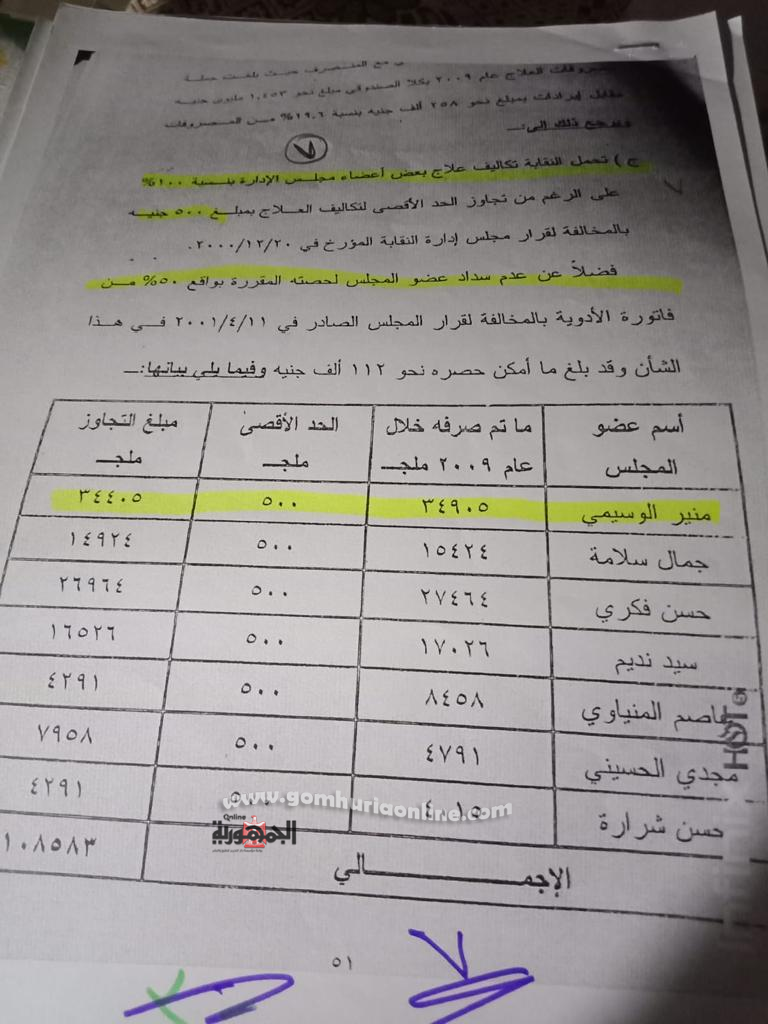 مع المنصرف حيث بلغت جملة
مصروفات العلاج عام ٢٠٠٩ بكلا الصندوقي مبلغ نحو ١,٤٥٣ مليون جنيه
مقابل إيرادات بمبلغ نحو ٢٥٨ ألف جنيه بنسبة ١٩,٦% من المصروفات
ويرجع ذلك إلى:ـ
٧
ج ) تحمل النقابة تكاليف علاج بعض أعضاء مجلس الإدارة بنسبة ١٠٠%
على الرغم من تجاوز الحد الأقصى لتكاليف العلاج بمبلغ ٥٠٠ جنيه
بالمخالفة لقرار مجلس إدارة النقابة المؤرخ في ٢٠٠٠/١٢/٢٠.
فضلاً عن عدم سداد عضو المجلس لحصته المقررة بواقع ٥٠% من
فاتورة الأدوية بالمخالفة لقرار المجلس الصادر في ٢٠٠١/٤/١١ في هذا
الشأن وقد بلغ ما أمكن حصره نحو ١١٢ ألف جنيه وفيما يلي بيانها:ــ
أسم عضو المجلس ما تم صرفه خلال عام ٢٠٠٩ ملجـ الحد الأقصى ملجـ مبلغ التجاوز ملجـ
منير الوسيمي ٣٤٩٠٥ ٥٠٠ ٣٤٤٠٥
جمال سلامة ١٥٤٢٤ ٥٠٠ ١٤٩٢٤
حسن فكري ٢٧٤٦٤ ٥٠٠ ٢٦٩٦٤
سيد نديم ١٧٠٢٦ ٥٠٠ ١٦٥٢٦
عاصم المنياوي ٨٤٥٨ ٥٠٠ ٤٢٩١
مجدي الحسيني ٤٧٩١ ٥٠٠ ٧٩٥٨
حسن شرارة ٤٠١٥ ٥٠٠ ٤٢٩١
الإجمـــالي ١٠٨٥٨٣
www.gomhuriaonline.com
Online
الجمهورية
٥١